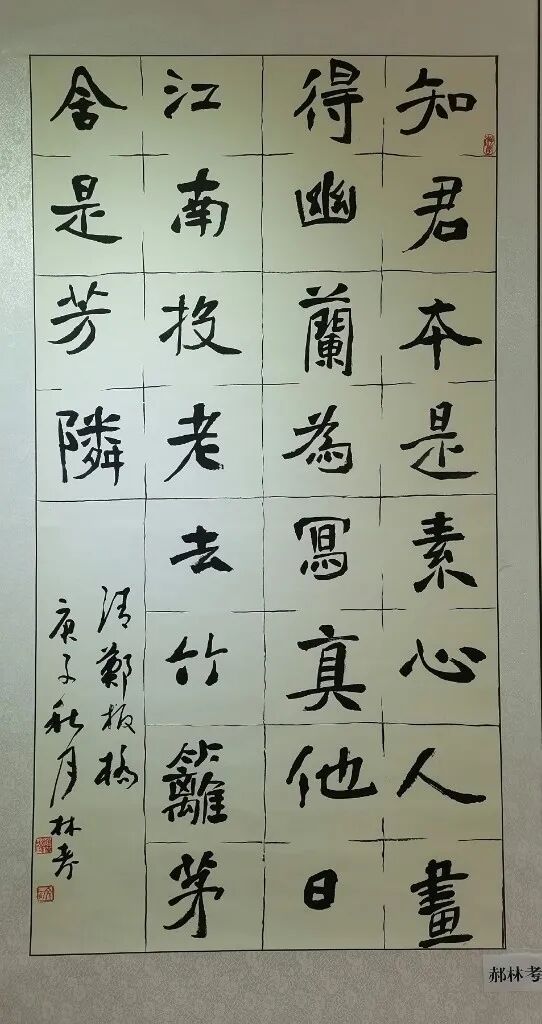 知君本是素心人畫
得幽蘭為寫真他日
江南投老去竹籬茅
舍是芳隣
清鄭板橋
庚子秋月林考
郝林考